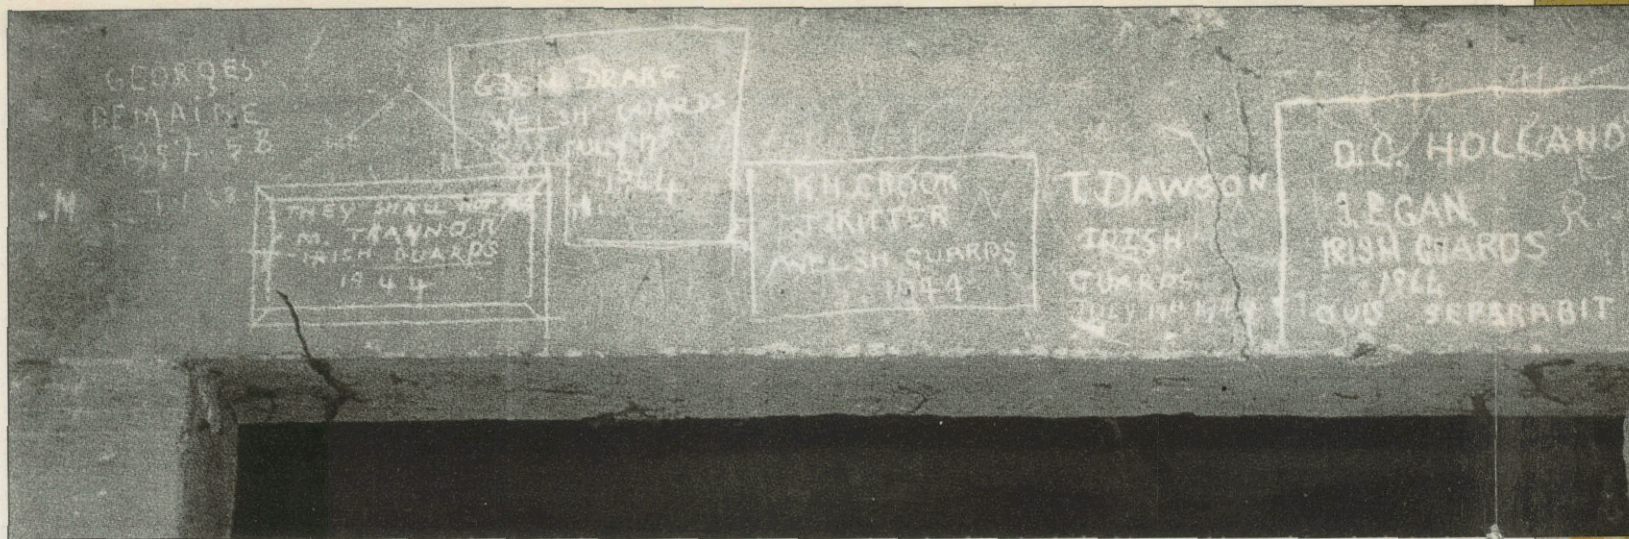 GEORGES
DEMAINE
1957
.M
THEY SHALL
M. TRAYNOR
IRISH GUARDS
1944
WELSH GUARDS
JULY
1944
CROOK
J. RITTER
WELSH GUARDS
1944
T. DAWSON
IRISH
GUARDS
JULY 1944
D.C. HOLLAND
J. EGAN
IRISH GUARDS
1944
QUIS SEPERABIT